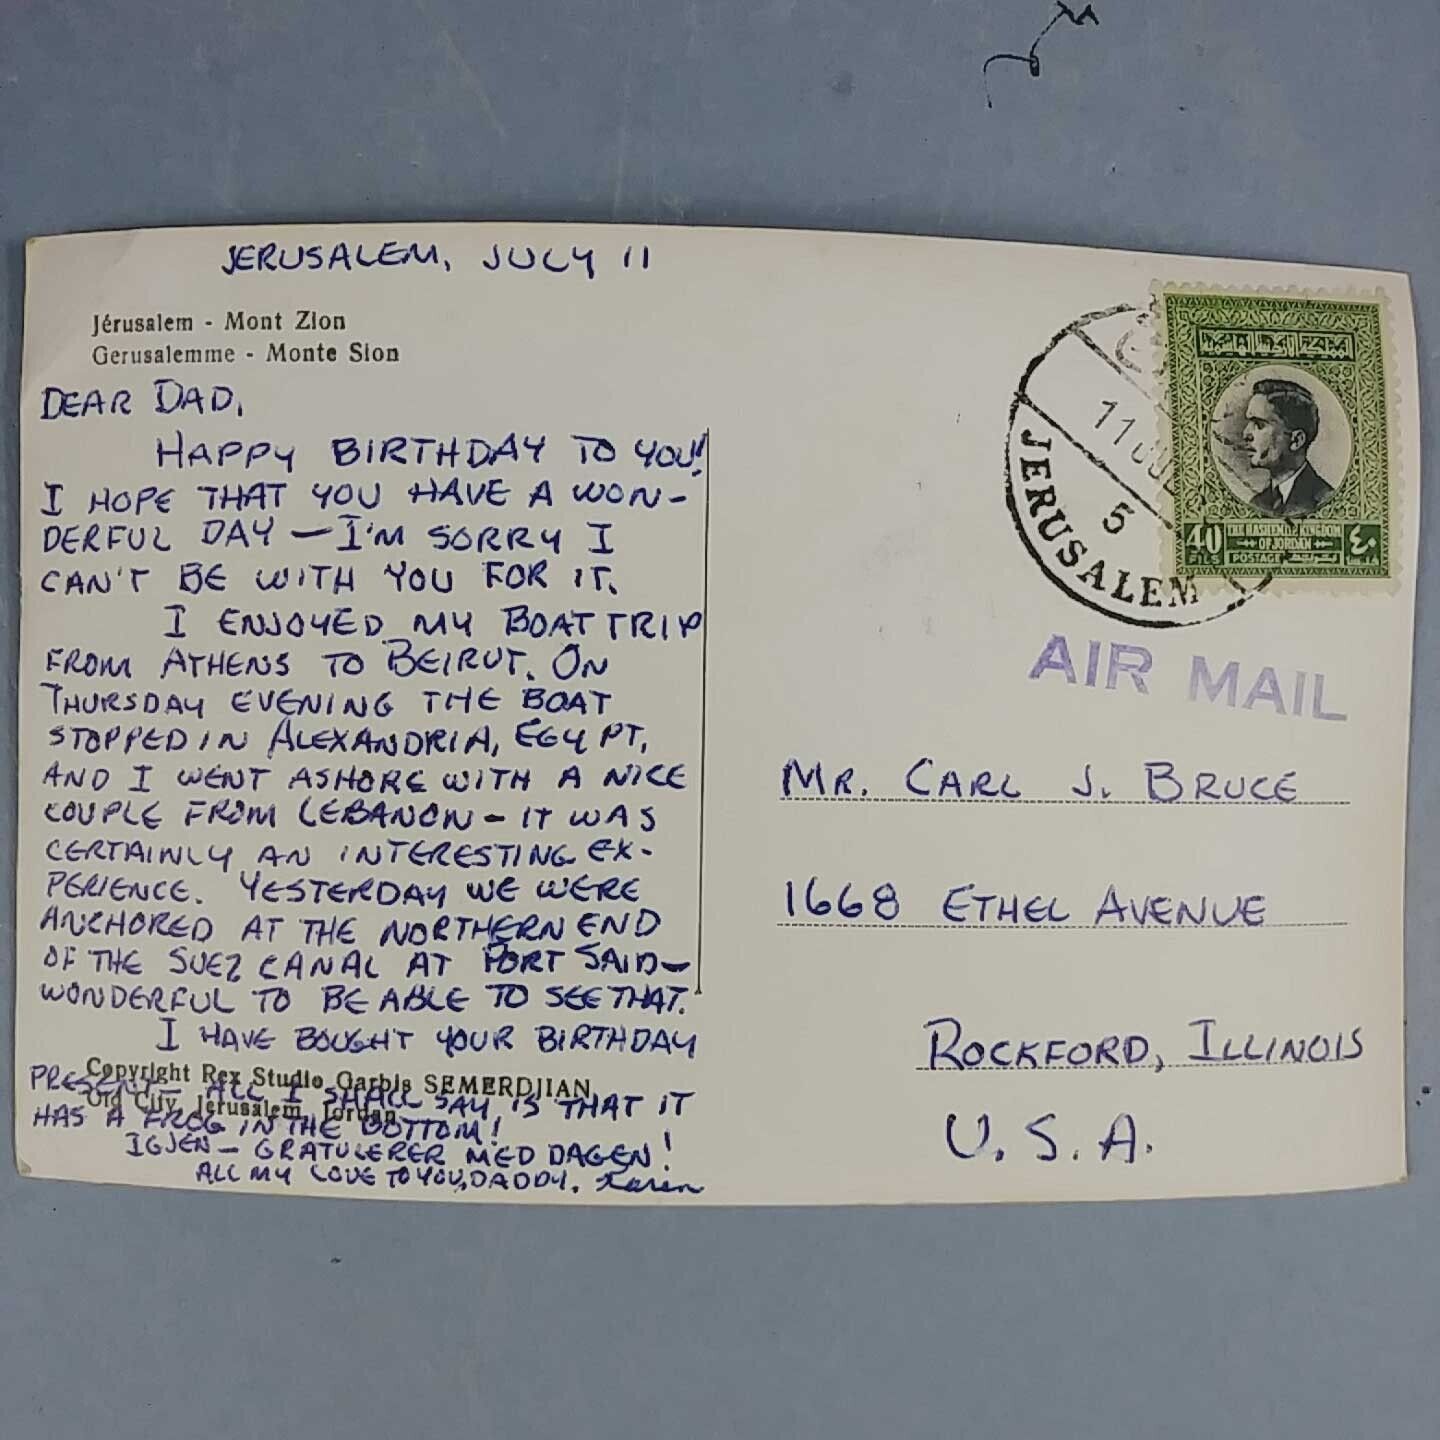 JERUSALEM, JULY 11
Jérusalem - Mont Zion
Gerusalemme - Monte Sion
DEAR DAD,
HAPPY BIRTHDAY TO YOU!
I HOPE THAT YOU HAVE A WON-
DERFUL DAY — I'M SORRY I
CAN'T BE WITH YOU FOR IT.
I ENJOYED MY BOAT TRIP
FROM ATHENS TO BEIRUT. ON
THURSDAY EVENING THE BOAT
STOPPED IN ALEXANDRIA, EGYPT,
AND I WENT ASHORE WITH A NICE
COUPLE FROM LEBANON - IT WAS
CERTAINLY AN INTERESTING EX-
PERIENCE. YESTERDAY WE WERE
ANCHORED AT THE NORTHERN END
OF THE SUEZ CANAL AT PORT SAID—
WONDERFUL TO BE ABLE TO SEE THAT.
I HAVE BOUGHT YOUR BIRTHDAY
PRESENT - ALL I SHALL SAY IS THAT IT
HAS A FROG IN THE BOTTOM!
IGJEN - GRATULERER MED DAGEN!
ALL MY LOVE TO YOU, DADDY. Karen
Copyright Rex Studio Garbis SEMERDJIAN
Old City, Jerusalem, Jordan
11
5
JERUSALEM
المملكة الأردنية الهاشمية
40 THE HASHEMITE KINGDOM ٤٠
OF JORDAN
FILS POSTAGE
AIR MAIL
MR. CARL J. BRUCE
1668 ETHEL AVENUE
ROCKFORD, ILLINOIS
U.S.A.